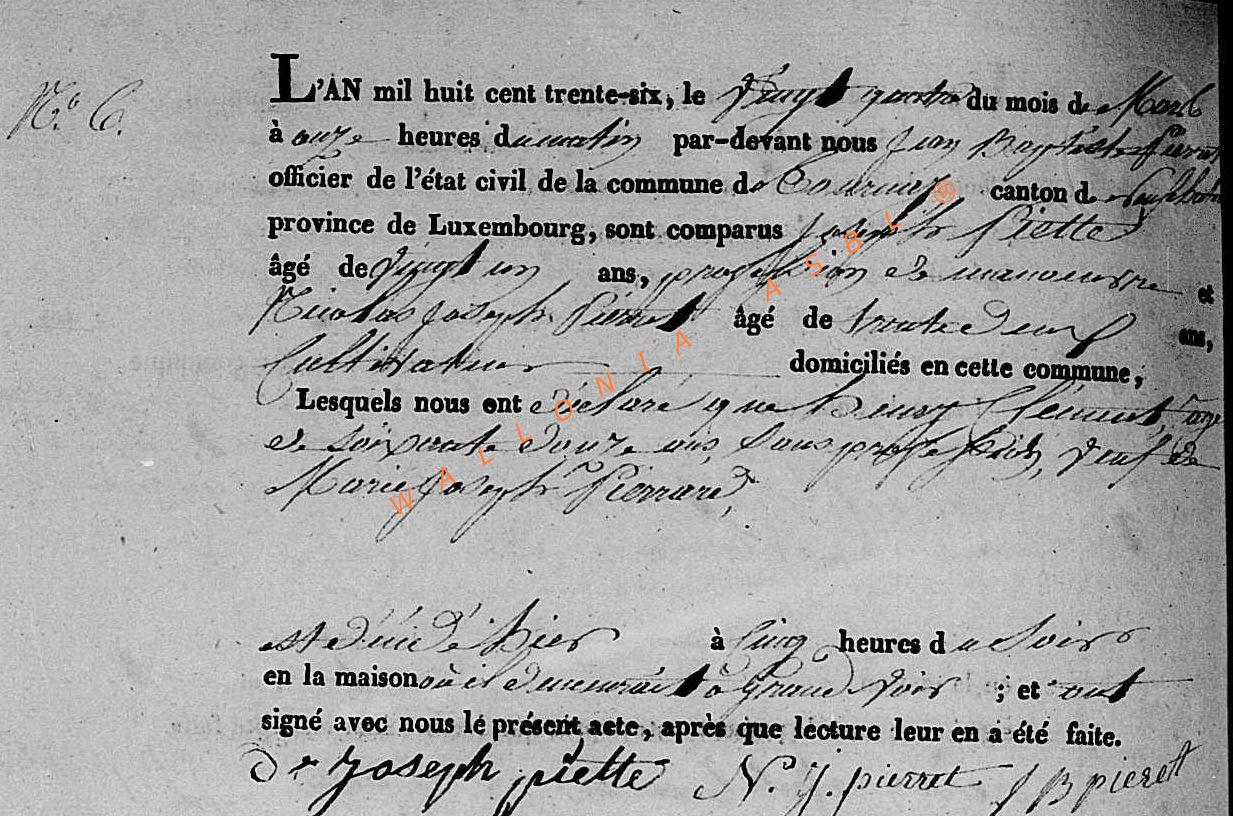 N.° 6.
L'AN mil huit cent trente-six, le vingt quatre du mois de Mars
à onze heures du matin par-devant nous Jean Baptiste Pierret
officier de l'état civil de la commune de Tournay canton de Neufchateau
province de Luxembourg, sont comparus Joseph Piette
âgé de vingt un ans, profession de manoeuvre et
Nicolas Joseph Pierret âgé de trente deux ans,
Cultivateur domiciliés en cette commune,
Lesquels nous ont déclaré que Henry Clément, agé
de soixante douze ans, sans profession, veuf de
Marie Joseph Pierrard,
est décédé hier à cinq heures du soir
en la maison où il demeurait à Grand voir ; et ont
signé avec nous le présent acte, après que lecture leur en a été faite.
Joseph piette N. J. pierret J B pieret
WALLONIA ASBL ®